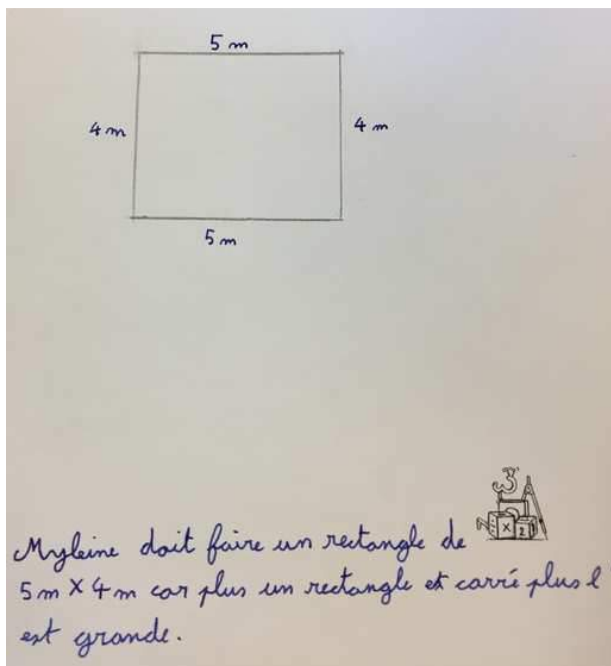 5 m
4 m
4 m
5 m
3
x 2
Myleine doit faire un rectangle de
5 m × 4 m car plus un rectangle et carré plus l
est grande.